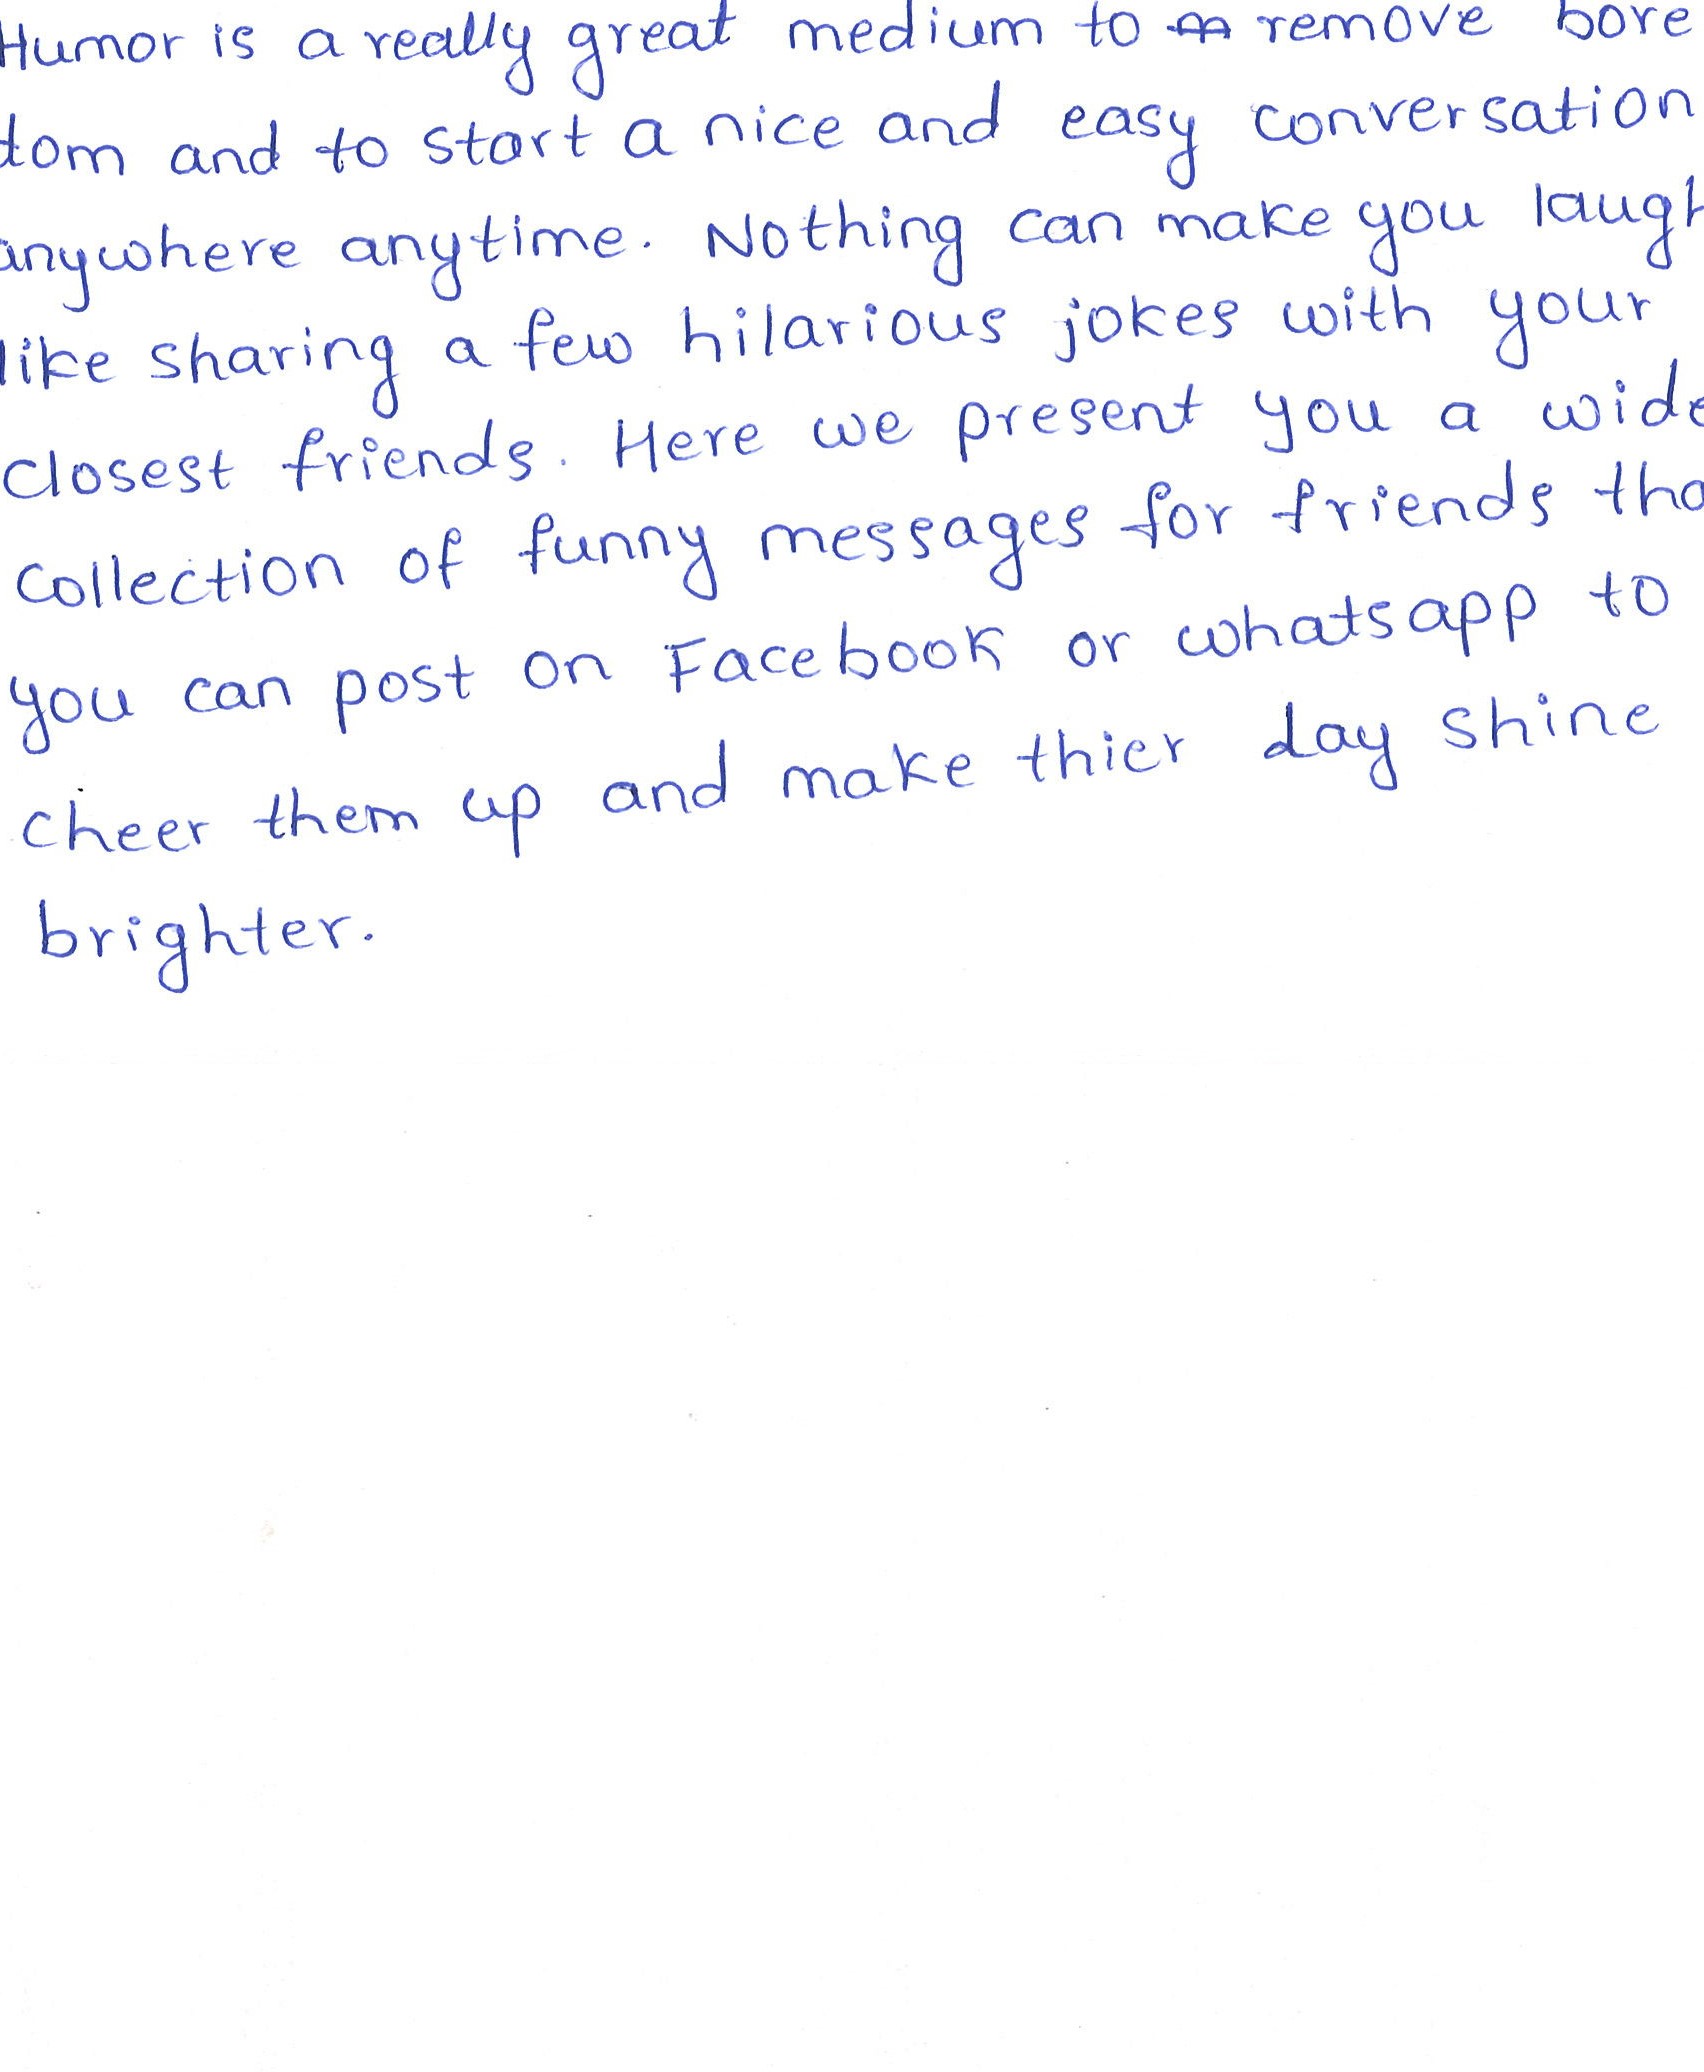 Humor is a really great medium to remove bore
dom and to start a nice and easy conversation
anywhere anytime. Nothing can make you laugh
like sharing a few hilarious jokes with your
closest friends. Here we present you a wide
collection of funny messages for friends tha
you can post on Facebook or whatsapp to
cheer them up and make thier day shine
brighter.